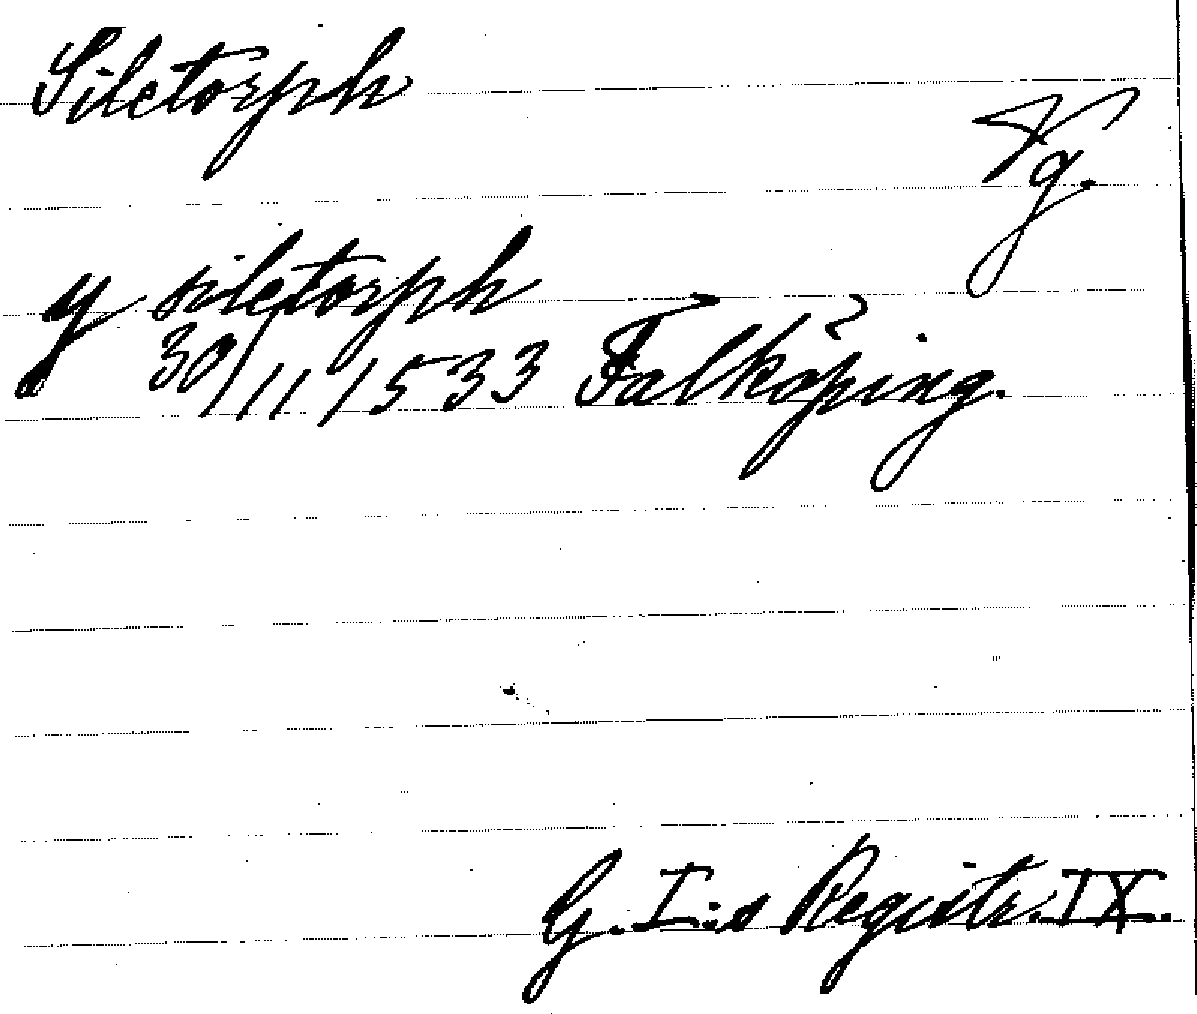 Siletorph
Vg.
y siletorph
30/11 1533 Falköping.
G. I:s Registr. IX.